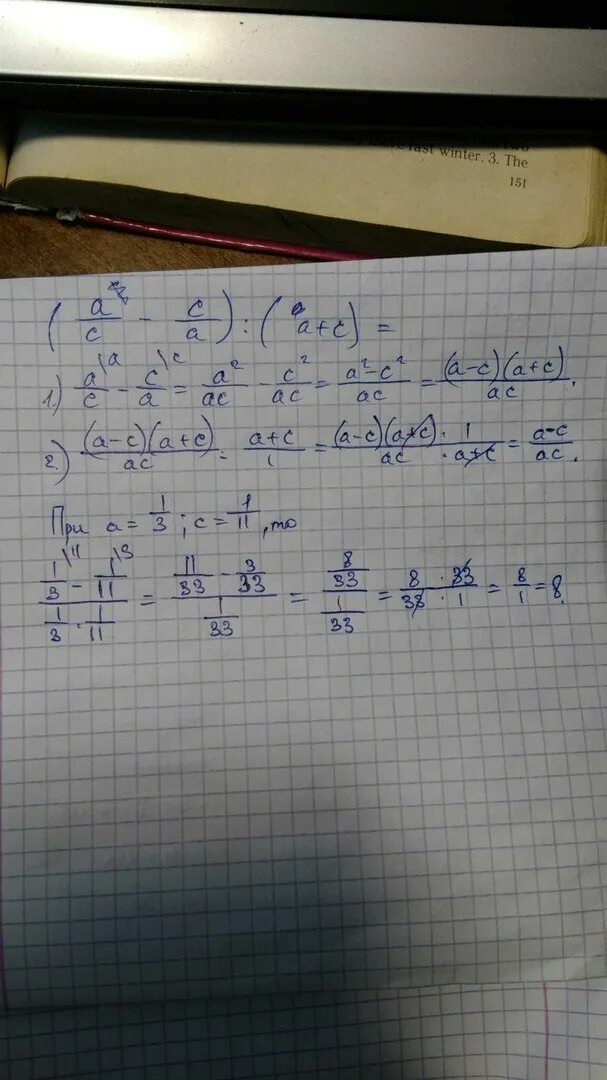 there last winter. 3. The
151
( a/c − c/a ) : ( a+c ) =
1.) a/c \a − c/a \c = a²/ac − c²/ac = a²−c²/ac = (a−c)(a+c)/ac .
2.) (a−c)(a+c)/ac = a+c/1 = (a−c)(a+c) · 1/ac · a+c = a−c/ac .
При a = 1/3 ; c = 1/11 , то
1/3 \11 − 1/11 \3 / 1/3 · 1/11 = 11/33 − 3/33 / 1/33 = 8/33 / 1/33 = 8 · 33/33 · 1 = 8/1 = 8.